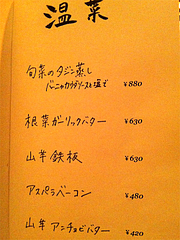 温菜
旬菜のタジン蒸し
バーニャカウダソースと塩で
¥880
根菜ガーリックバター
¥630
山芋鉄板
¥630
アスパラベーコン
¥480
山芋アンチョビバター
¥420